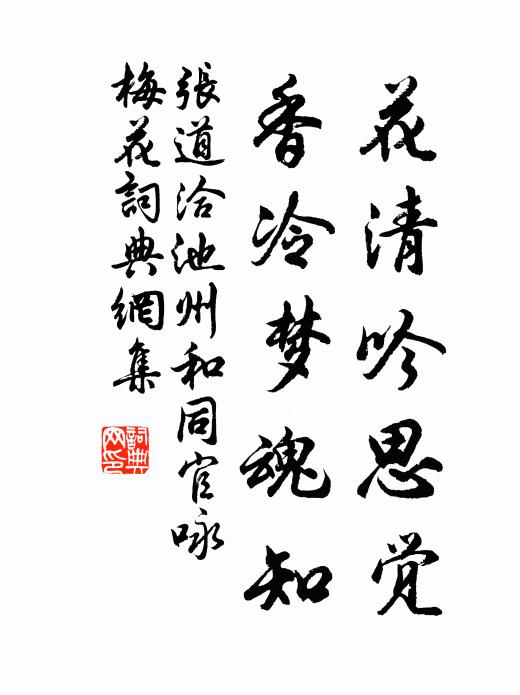 花清吟思觉
香冷梦魂知
張道洽池州和同官咏
梅花詞典網集
詞典
网印